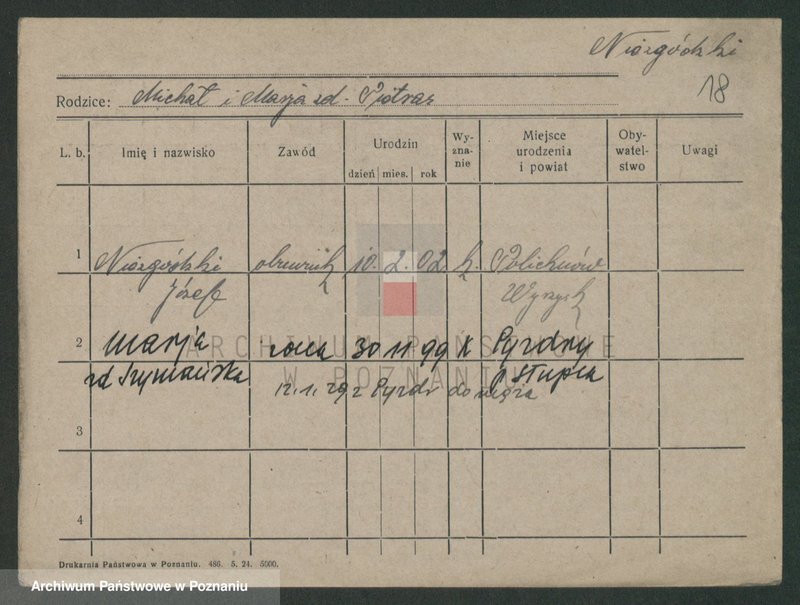 18
Rodzice: Michał i Marja zd. Piotras
L. b. Imię i nazwisko Zawód Urodzin dzień mies. rok Wyznanie Miejsce urodzenia i powiat Obywatelstwo Uwagi
1 10. 2. 02 k.
Józef Wyrzysk
2 Marja żona 30 11 99 k Pyzdry
zd Szymańska p Słupca
12. 1. 29 z Pyzdr do męża
3
4
Drukarnia Państwowa w Poznaniu. 486. 5. 24. 5000.
ARCHIWUM PAŃSTWOWE
W POZNANIU
Archiwum Państwowe w Poznaniu